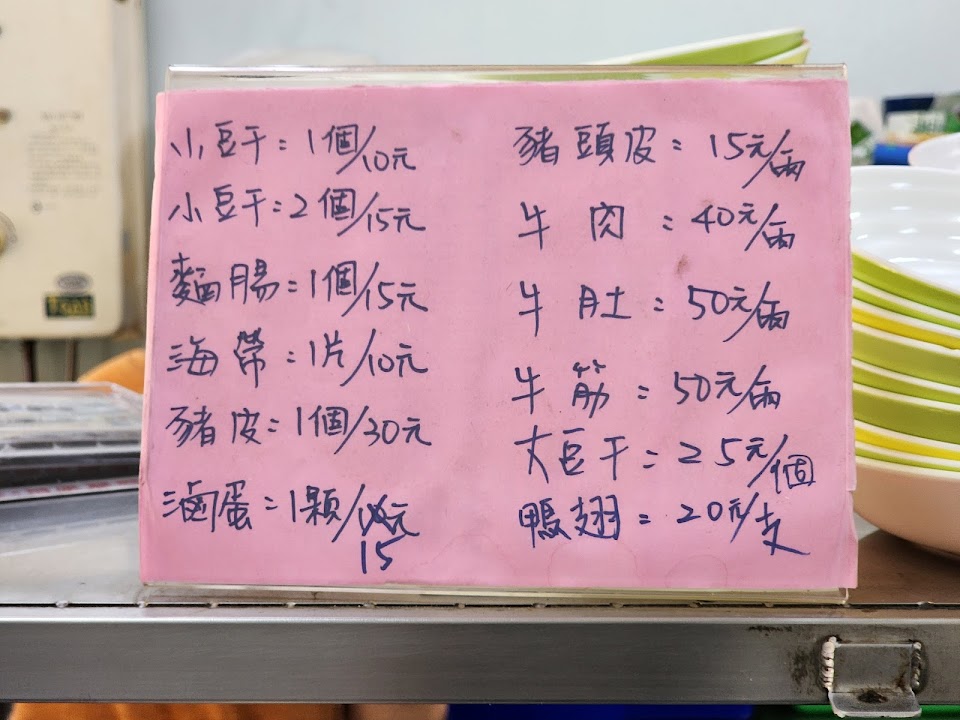 小豆干:1個/10元
小豆干:2個/15元
麵腸:1個/15元
海帶:1片/10元
豬皮:1個/30元
滷蛋:1顆/元
15
豬頭皮:15元/兩
牛肉:40元/兩
牛肚:50元/兩
牛筋:50元/兩
大豆干:25元/個
鴨翅:20元/支